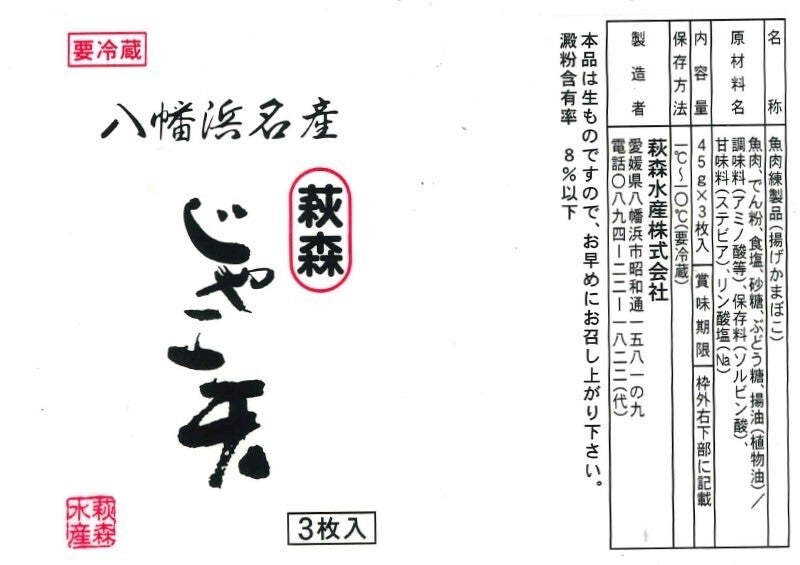 要冷蔵
八幡浜名産
萩森
じゃこ天
萩森水産
3枚入
名称 魚肉練製品(揚げかまぼこ)
原材料名 魚肉、でん粉、食塩、砂糖、ぶどう糖、揚油(植物油)/
調味料(アミノ酸等)、保存料(ソルビン酸)、
甘味料(ステビア)、リン酸塩(Na)
内容量 45g×3枚入 賞味期限 枠外右下部に記載
保存方法 一℃〜一〇℃(要冷蔵)
製造者 萩森水産株式会社
愛媛県八幡浜市昭和通一五八一の九
電話〇八九四ー二二ー一八二二(代)
本品は生ものですので、お早めにお召し上がり下さい。
澱粉含有率 8%以下